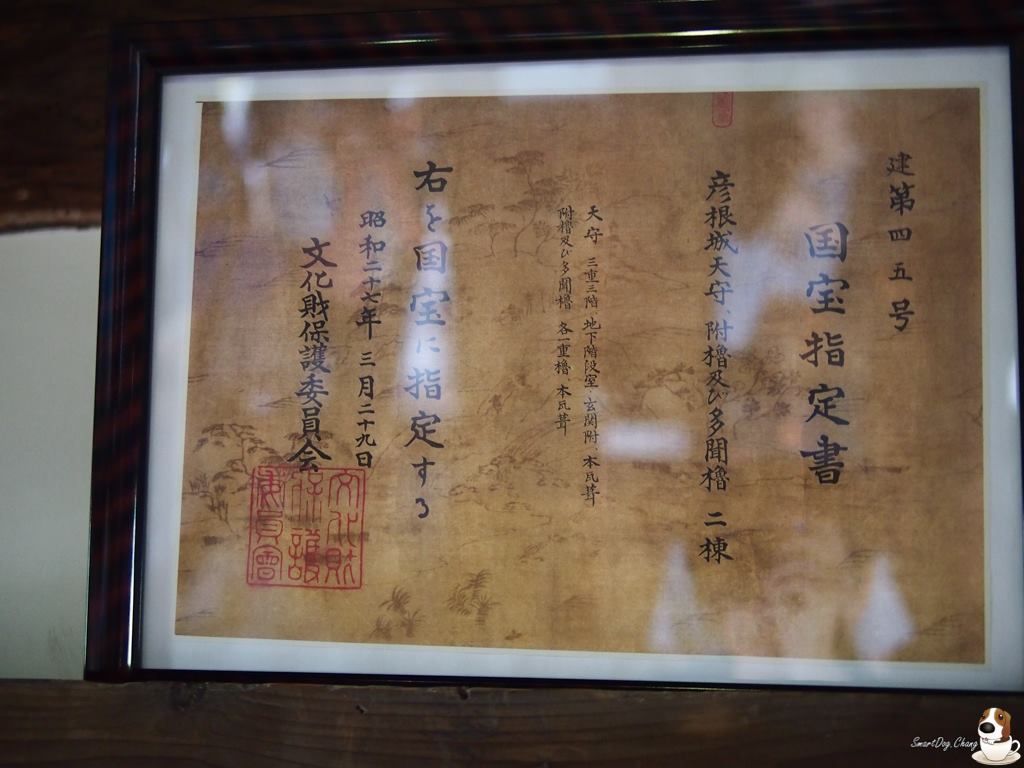 建第四五号
国宝指定書
彦根城天守、附櫓及び多聞櫓 二棟
天守 三重三階、地下階段室、玄関附、本瓦葺
附櫓及び多聞櫓 各一重櫓 本瓦葺
右を国宝に指定する
昭和二十七年 三月二十九日
文化財保護委員会
文化財
保護
委員會
SmartDog.Chang